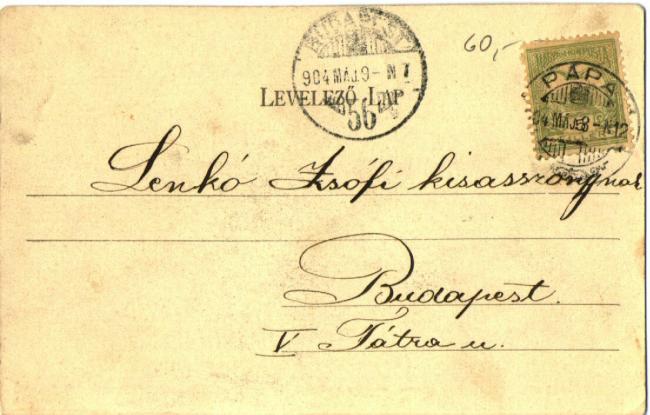 60,-
BUDAPEST
904 MÁJ. 9 - N 7
56
LEVELEZŐ LAP
PÁPA
04 MÁJ. 8 - N12
Lenkó Zsófi kisasszonynak
Budapest.
V Tátra u.